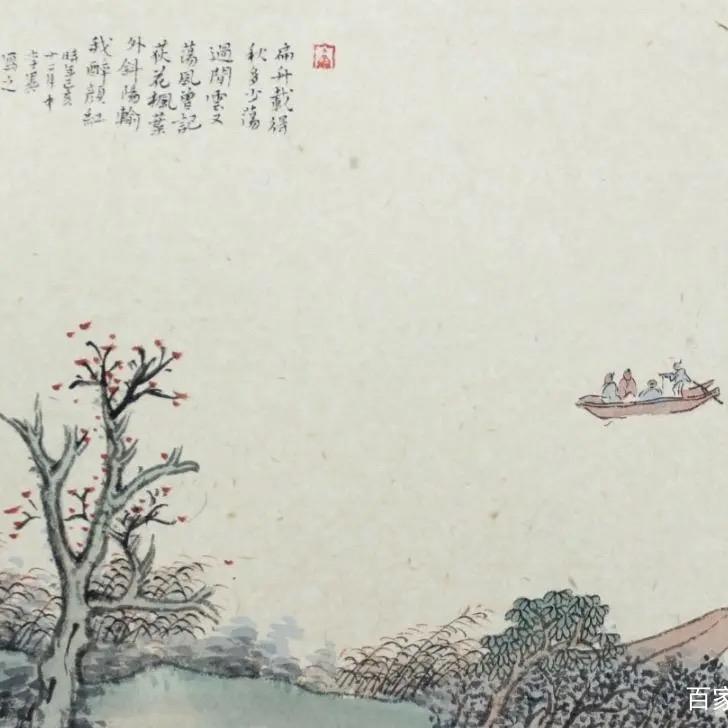 扁舟載得
秋多少蕩
過閒雲又
蕩風曾記
荻花楓葉
外斜陽輸
我醉顏紅
時年己亥
十二月中
寫之
百家